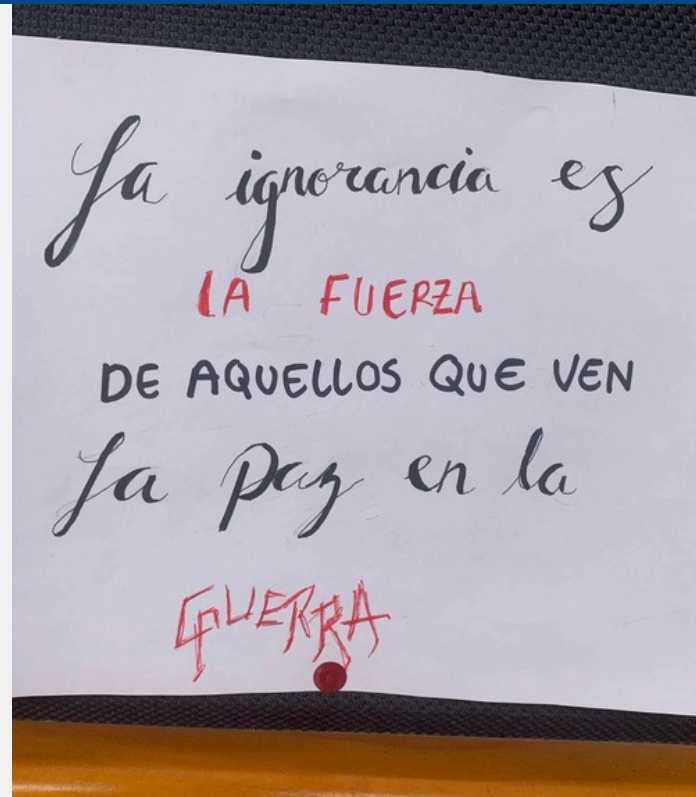 La ignorancia es
LA FUERZA
DE AQUELLOS QUE VEN
La paz en la
GUERRA